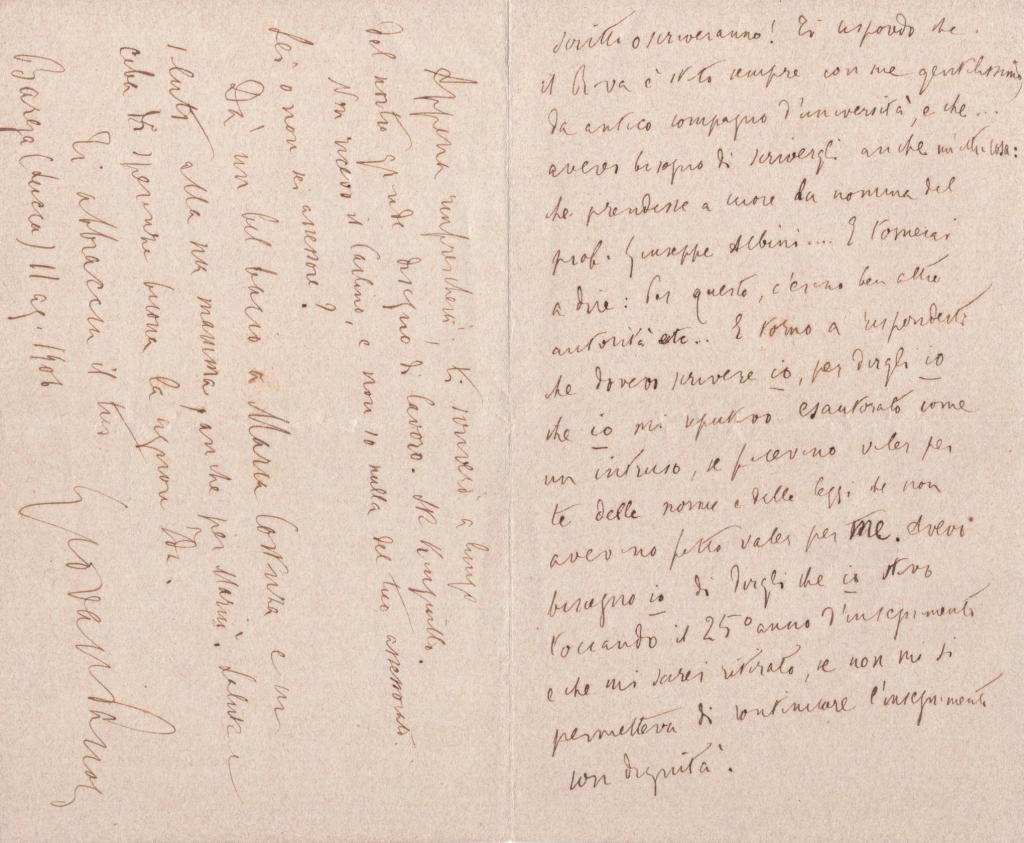 scritto o scriveranno! Ti rispondo che
il Rava è stato sempre con me gentilissimo
da antico compagno d'università, e che...
avevo bisogno di scrivergli anche un'altra cosa:
che prendesse a cuore la nomina del
prof. Giuseppe Albini.... E tornerai
a dire: Per questo, c'erano ben altre
autorità etc... E torno a risponderti
che dovevo scrivere io, per dirgli io
che io mi reputavo esautorato come
un intruso, se facevano valer per
te delle norme e delle leggi che non
avevano fatto valer per me. Avevo
bisogno io di dirgli che io stavo
toccando il 25° anno d'insegnamento
e che mi sarei ritirato, se non mi si
permetteva di continuare l'insegnamento
con dignità.
Appena rinfrescherà, ti scriverò a lungo
del nostro grande disegno di lavoro. Sta tranquillo.
Non ricevo il Carlino, e non so nulla del tuo assessorato.
Sei o non sei assessore?
Dà un bel bacio a Maria Costanza e un
saluto alla sua mamma, anche per Mariù. Salute e
di speranze buona la signora Ida.
Ti abbraccia il tuo
Giovanni
Barga (Lucca) 11 ag. 1906